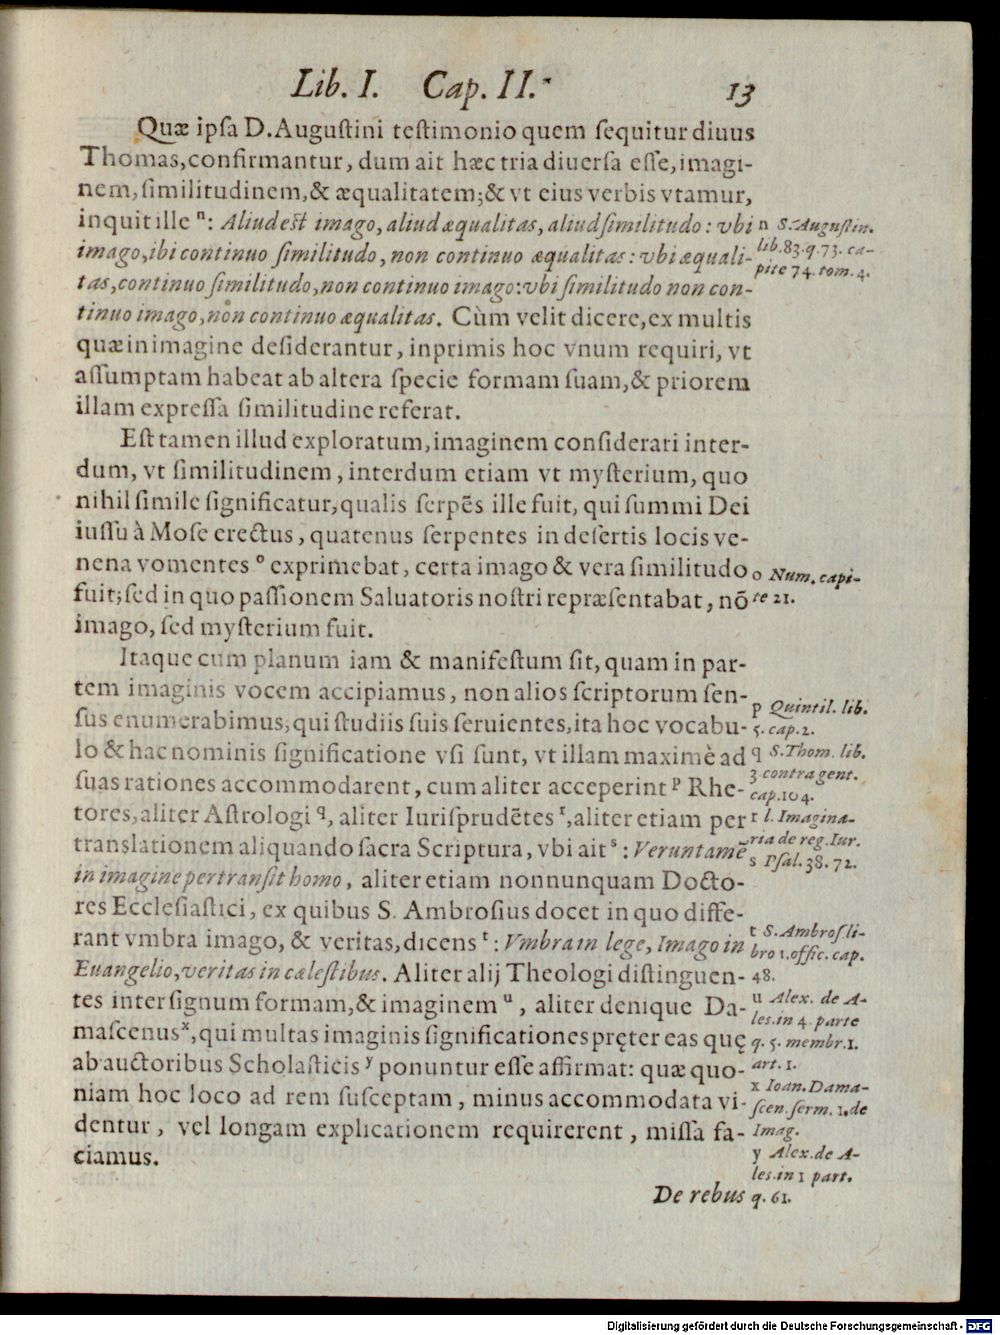 Lib. I. Cap. II. 13
Quæ ipſa D. Auguſtini teſtimonio quem ſequitur diuus
Thomas, confirmantur, dum ait hæc tria diuerſa eſſe, imagi-
nem, ſimilitudinem, & æqualitatem; & vt eius verbis vtamur,
inquit ille n: Aliud eſt imago, aliud æqualitas, aliud ſimilitudo: vbi
imago, ibi continuo ſimilitudo, non continuo æqualitas: vbi æquali-
tas, continuo ſimilitudo, non continuo imago: vbi ſimilitudo non con-
tinuo imago, non continuo æqualitas. Cùm velit dicere, ex multis
quæ in imagine deſiderantur, inprimis hoc vnum requiri, vt
aſſumptam habeat ab altera ſpecie formam ſuam, & priorem
illam expreſſa ſimilitudine referat.
Eſt tamen illud exploratum, imaginem conſiderari inter-
dum, vt ſimilitudinem, interdum etiam vt myſterium, quo
nihil ſimile ſignificatur, qualis ſerpẽs ille fuit, qui ſummi Dei
iuſſu à Moſe erectus, quatenus ſerpentes in deſertis locis ve-
nena vomentes o exprimebat, certa imago & vera ſimilitudo
fuit; ſed in quo paſſionem Saluatoris noſtri repræſentabat, nõ
imago, ſed myſterium fuit.
Itaque cum planum iam & manifeſtum ſit, quam in par-
tem imaginis vocem accipiamus, non alios ſcriptorum ſen-
ſus enumerabimus, qui ſtudiis ſuis ſeruientes, ita hoc vocabu-
lo & hac nominis ſignificatione vſi ſunt, vt illam maximè ad
ſuas rationes accommodarent, cum aliter acceperint p Rhe-
tores, aliter Aſtrologi q, aliter Iuriſprudẽtes r, aliter etiam per
translationem aliquando ſacra Scriptura, vbi ait s: Veruntamẽ
in imagine pertranſit homo, aliter etiam nonnunquam Docto-
res Eccleſiaſtici, ex quibus S. Ambroſius docet in quo diffe-
rant vmbra imago, & veritas, dicens t: Vmbra in lege, Imago in
Euangelio, veritas in cæleſtibus. Aliter alij Theologi diſtinguen-
tes inter ſignum formam, & imaginem u, aliter denique Da-
maſcenus x, qui multas imaginis ſignificationes pręter eas quę
ab auctoribus Scholaſticis y ponuntur eſſe affirmat: quæ quo-
niam hoc loco ad rem ſuſceptam, minus accommodata vi-
dentur, vel longam explicationem requirerent, miſſa fa-
ciamus.
De rebus
n S. Auguſtin.
lib. 83. q. 73. ca-
pite 74. tom. 4.
o Num. capi-
te 21.
p Quintil. lib.
5. cap. 2.
q S. Thom. lib.
3 contra gent.
cap. 104.
r l. Imagina-
ria de reg. Iur.
s Pſal. 38. 72.
t S. Ambroſ li-
bro 1. offic. cap.
48.
u Alex. de A-
les. in 4. parte
q. 5. membr. 1.
art. 1.
x Ioan. Dama-
ſcen. ſerm. 1. de
Imag.
y Alex. de A-
les. in 1 part.
q. 61.
Digitalisierung gefördert durch die Deutsche Forschungsgemeinschaft - DFG